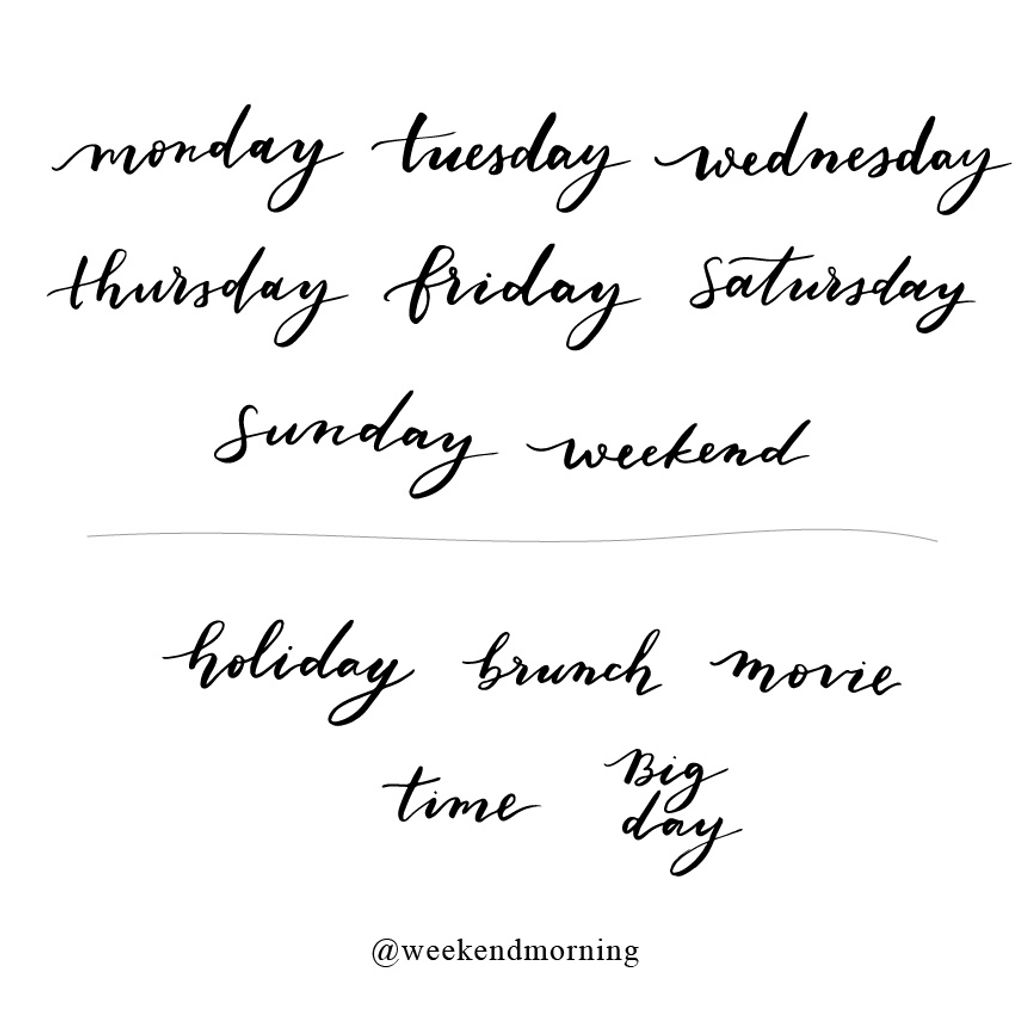 monday tuesday wednesday
thursday friday saturday
sunday weekend
holiday brunch movie
time Big
day
@weekendmorning